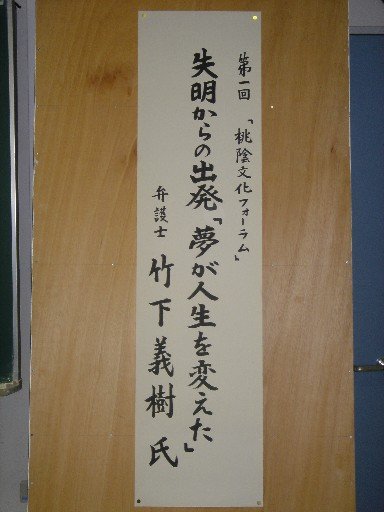 第一回 「桃陰文化フォーラム」
失明からの出発「夢が人生を変えた」
弁護士 竹下義樹氏